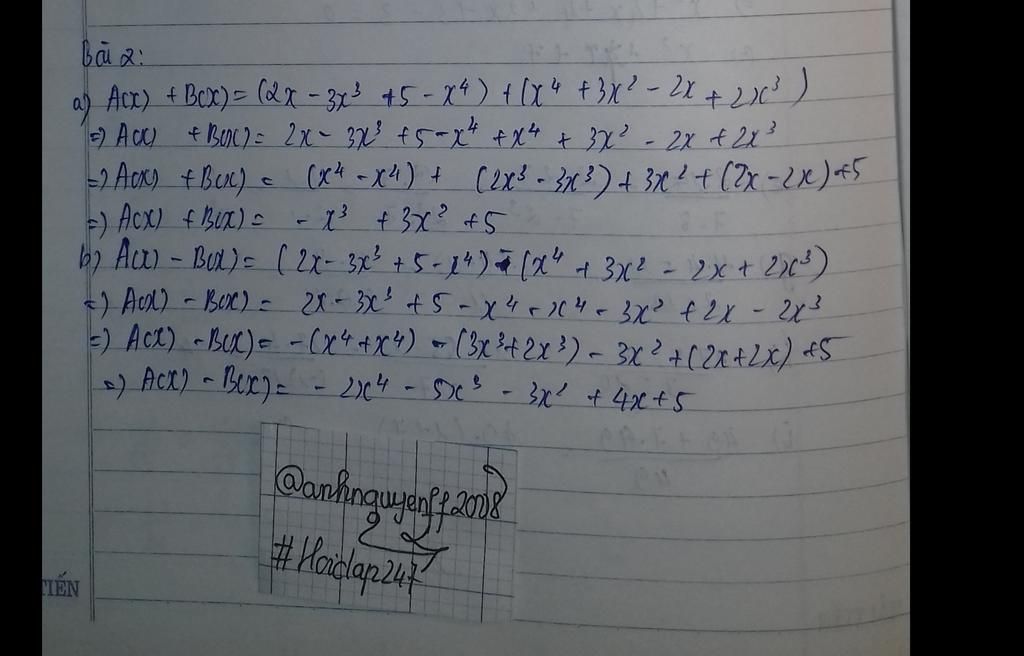 Bài 2:
a) A(x) + B(x) = (2x - 3x³ + 5 - x⁴) + (x⁴ + 3x² - 2x + 2x³)
=) A(x) + B(x) = 2x - 3x³ + 5 - x⁴ + x⁴ + 3x² - 2x + 2x³
=) A(x) + B(x) = (x⁴ - x⁴) + (2x³ - 3x³) + 3x² + (2x - 2x) + 5
=) A(x) + B(x) = - x³ + 3x² + 5
b) A(x) - B(x) = (2x - 3x³ + 5 - x⁴) - (x⁴ + 3x² - 2x + 2x³)
=) A(x) - B(x) = 2x - 3x³ + 5 - x⁴ - x⁴ - 3x² + 2x - 2x³
=) A(x) - B(x) = -(x⁴ + x⁴) - (3x³ + 2x³) - 3x² + (2x + 2x) + 5
=) A(x) - B(x) = - 2x⁴ - 5x³ - 3x² + 4x + 5
@anhnguyenff2008
#Hoidap247
TIẾN